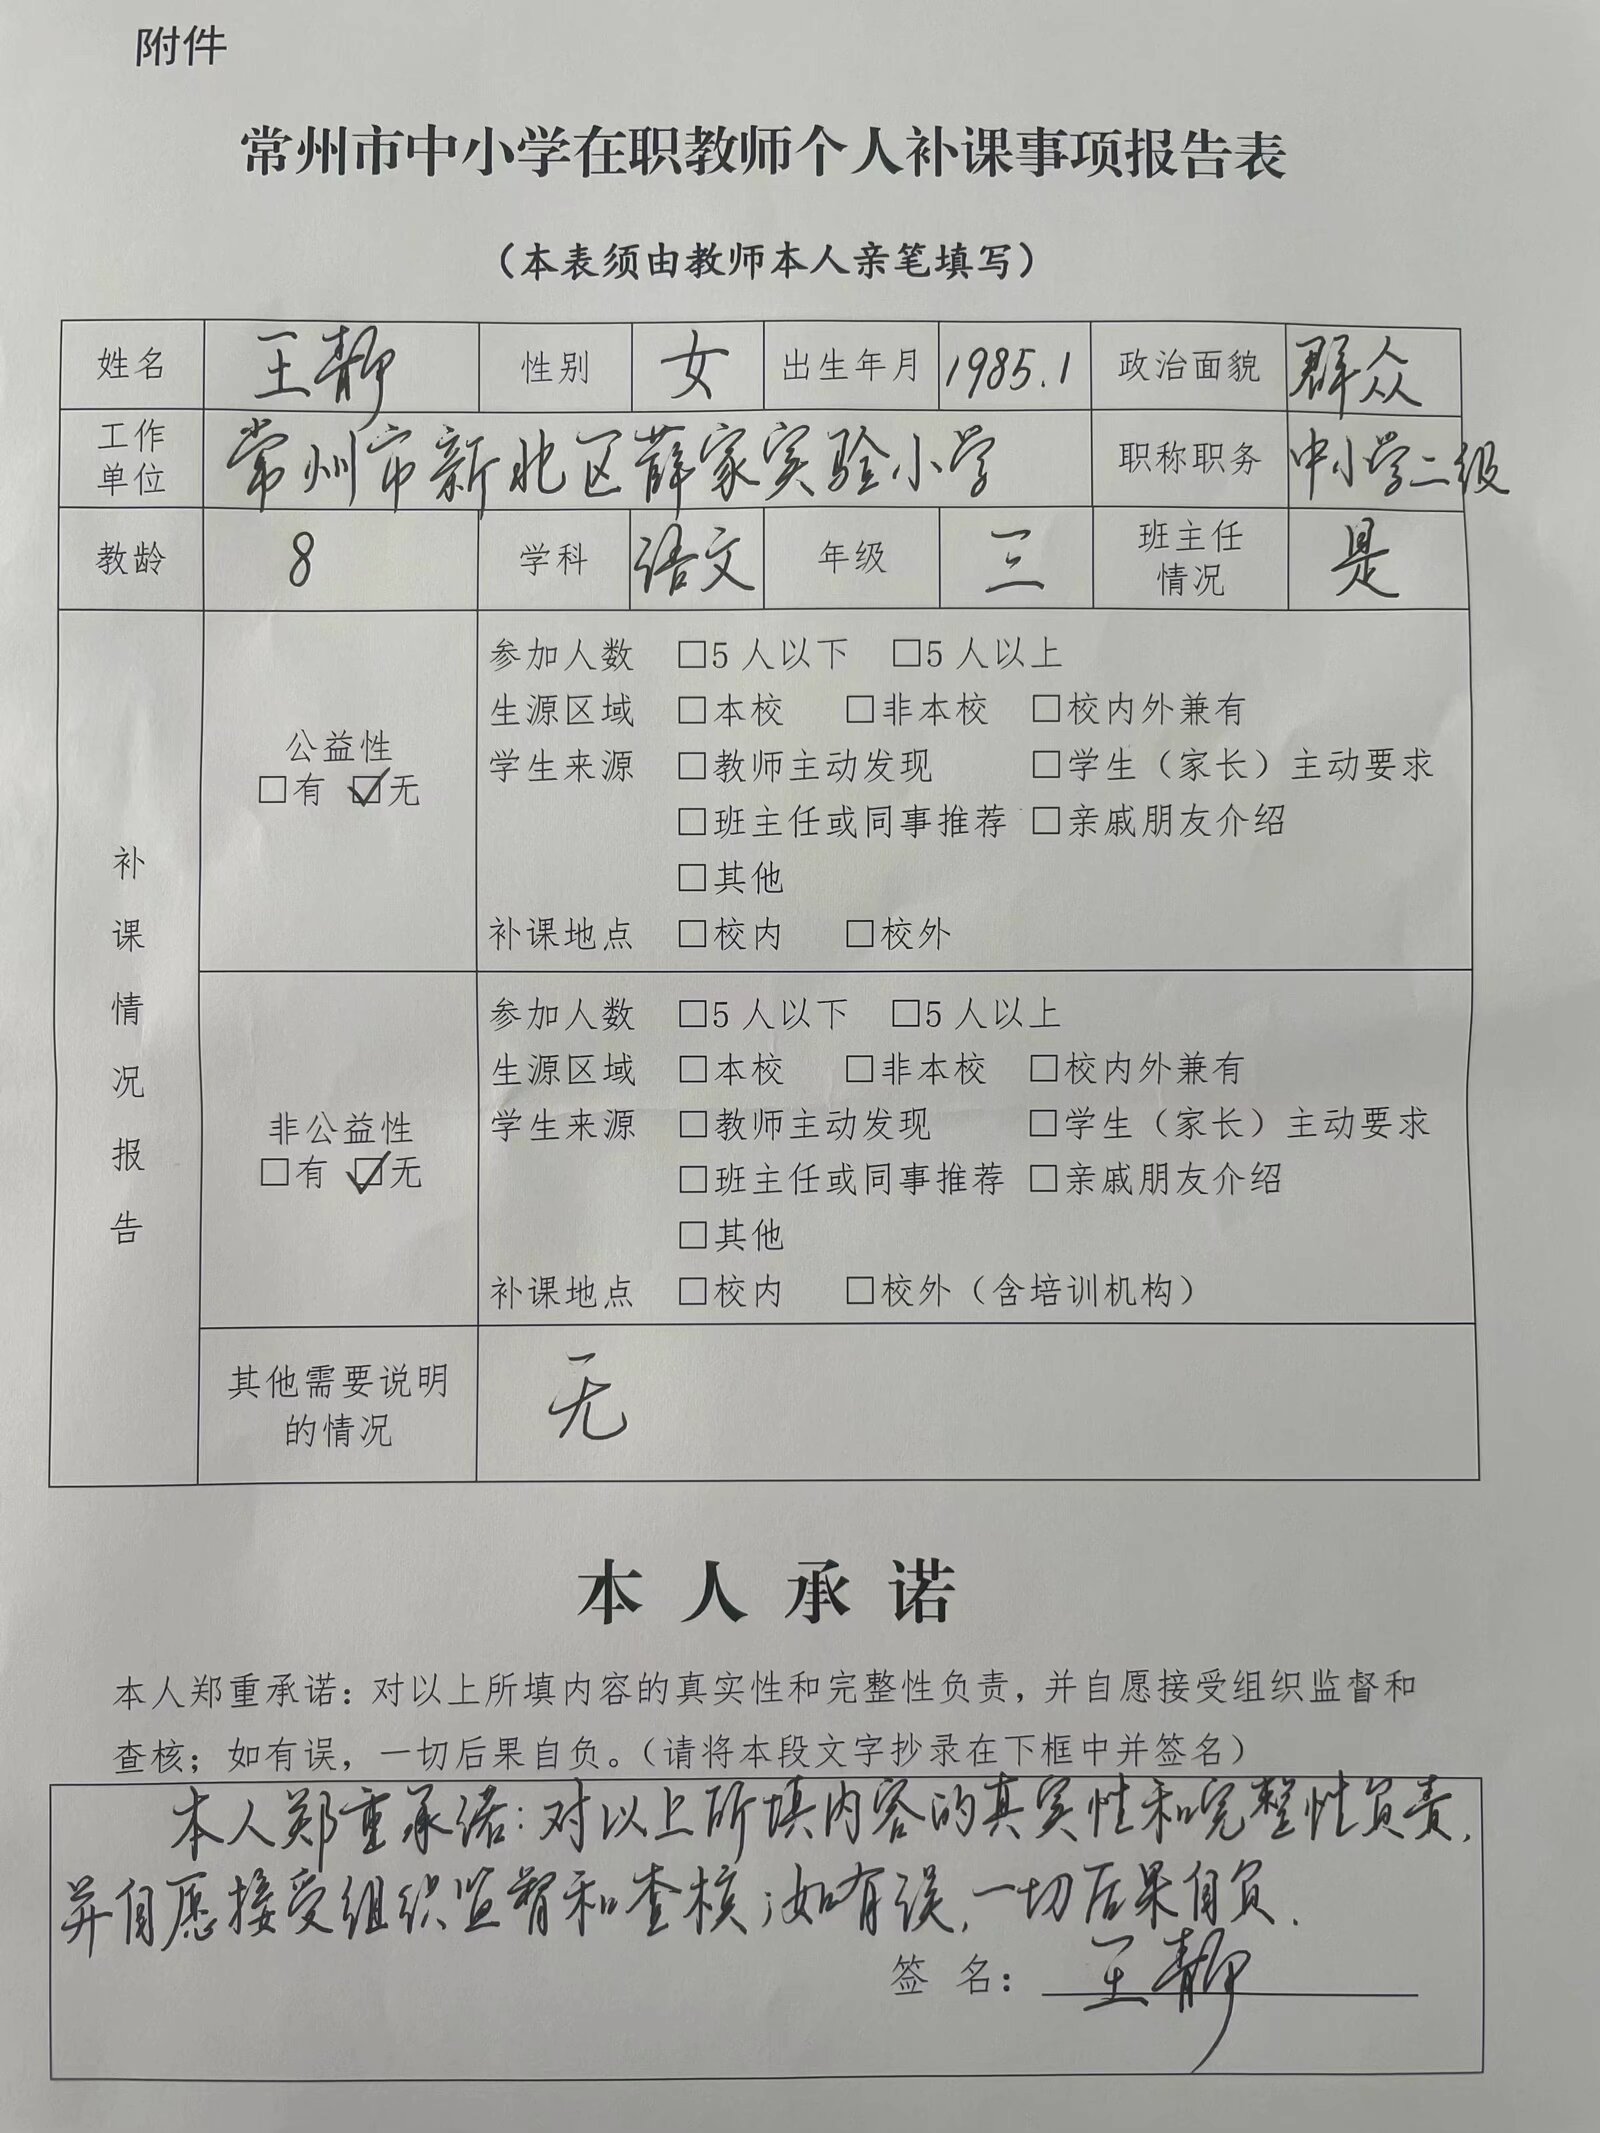 附件
常州市中小学在职教师个人补课事项报告表
（本表须由教师本人亲笔填写）
姓名 王静 性别 女 出生年月 1985.1 政治面貌 群众
工作单位 常州市新北区薛家实验小学 职称职务 中小学二级
教龄 8 学科 语文 年级 三 班主任情况 是
补课情况报告
公益性
□有 ☑无
参加人数 □5人以下 □5人以上
生源区域 □本校 □非本校 □校内外兼有
学生来源 □教师主动发现 □学生（家长）主动要求
□班主任或同事推荐 □亲戚朋友介绍
□其他
补课地点 □校内 □校外
非公益性
□有 ☑无
参加人数 □5人以下 □5人以上
生源区域 □本校 □非本校 □校内外兼有
学生来源 □教师主动发现 □学生（家长）主动要求
□班主任或同事推荐 □亲戚朋友介绍
□其他
补课地点 □校内 □校外（含培训机构）
其他需要说明
的情况
无
本人承诺
本人郑重承诺：对以上所填内容的真实性和完整性负责，并自愿接受组织监督和
查核；如有误，一切后果自负。（请将本段文字抄录在下框中并签名）
本人郑重承诺：对以上所填内容的真实性和完整性负责，
并自愿接受组织监督和查核；如有误，一切后果自负.
签 名： 王静